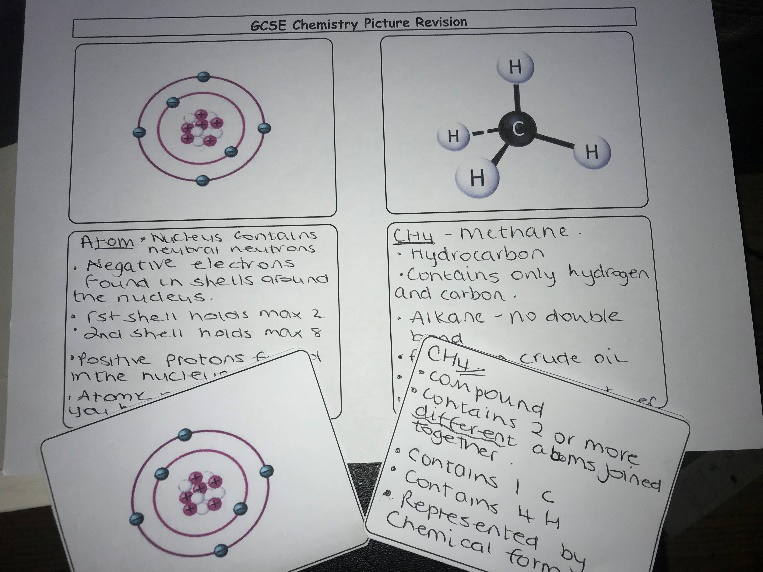 GCSE Chemistry Picture Revision
H
H
C
H
H
Atom • Nucleus contains
neutral neutrons
• Negative electrons
found in shells around
the nucleus.
• 1st shell holds max 2
• 2nd shell holds max 8
• Positive protons
in the
• Atom
you
CH4 - Methane.
• Hydrocarbon
• Contains only hydrogen
and carbon.
• Alkane - no double
bond
crude oil
CH4
• compound
• contains 2 or more
different atoms joined
together.
• contains 1 C
• contains 4 H
• Represented by
Chemical